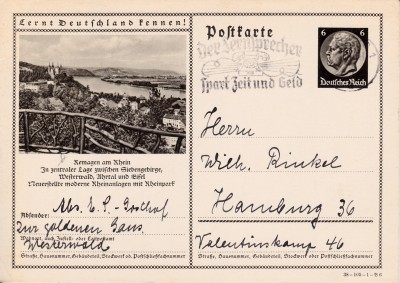 Lernt Deutschland kennen!
Postkarte
Der Fernsprecher
spart Zeit und Geld
6 6
Deutsches Reich
Remagen am Rhein
In zentraler Lage zwischen Siebengebirge,
Westerwald, Ahrtal und Eifel
Neuerstellte moderne Rheinanlagen mit Rheinpark
Absender:
Abs. E. S.
Zur goldenen Gans
Westerwald
Straße, Hausnummer, Gebäudeteil, Stockwerk od. Postschließfachnummer
Herrn
Wilh. Rinkel
Hamburg 36
Valentinskamp 46
Straße, Hausnummer, Gebäudeteil, Stockwerk oder Postschließfachnummer